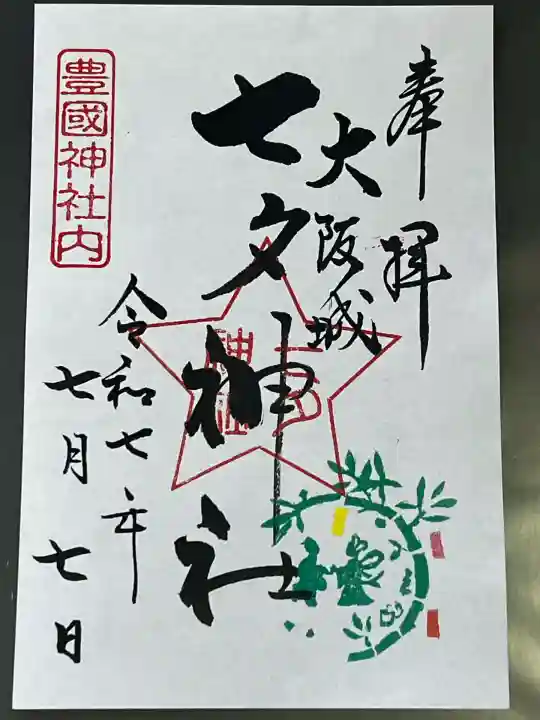 奉拝
大阪城
七夕神社
七夕神社
令和七年
七月七日
豊國神社内